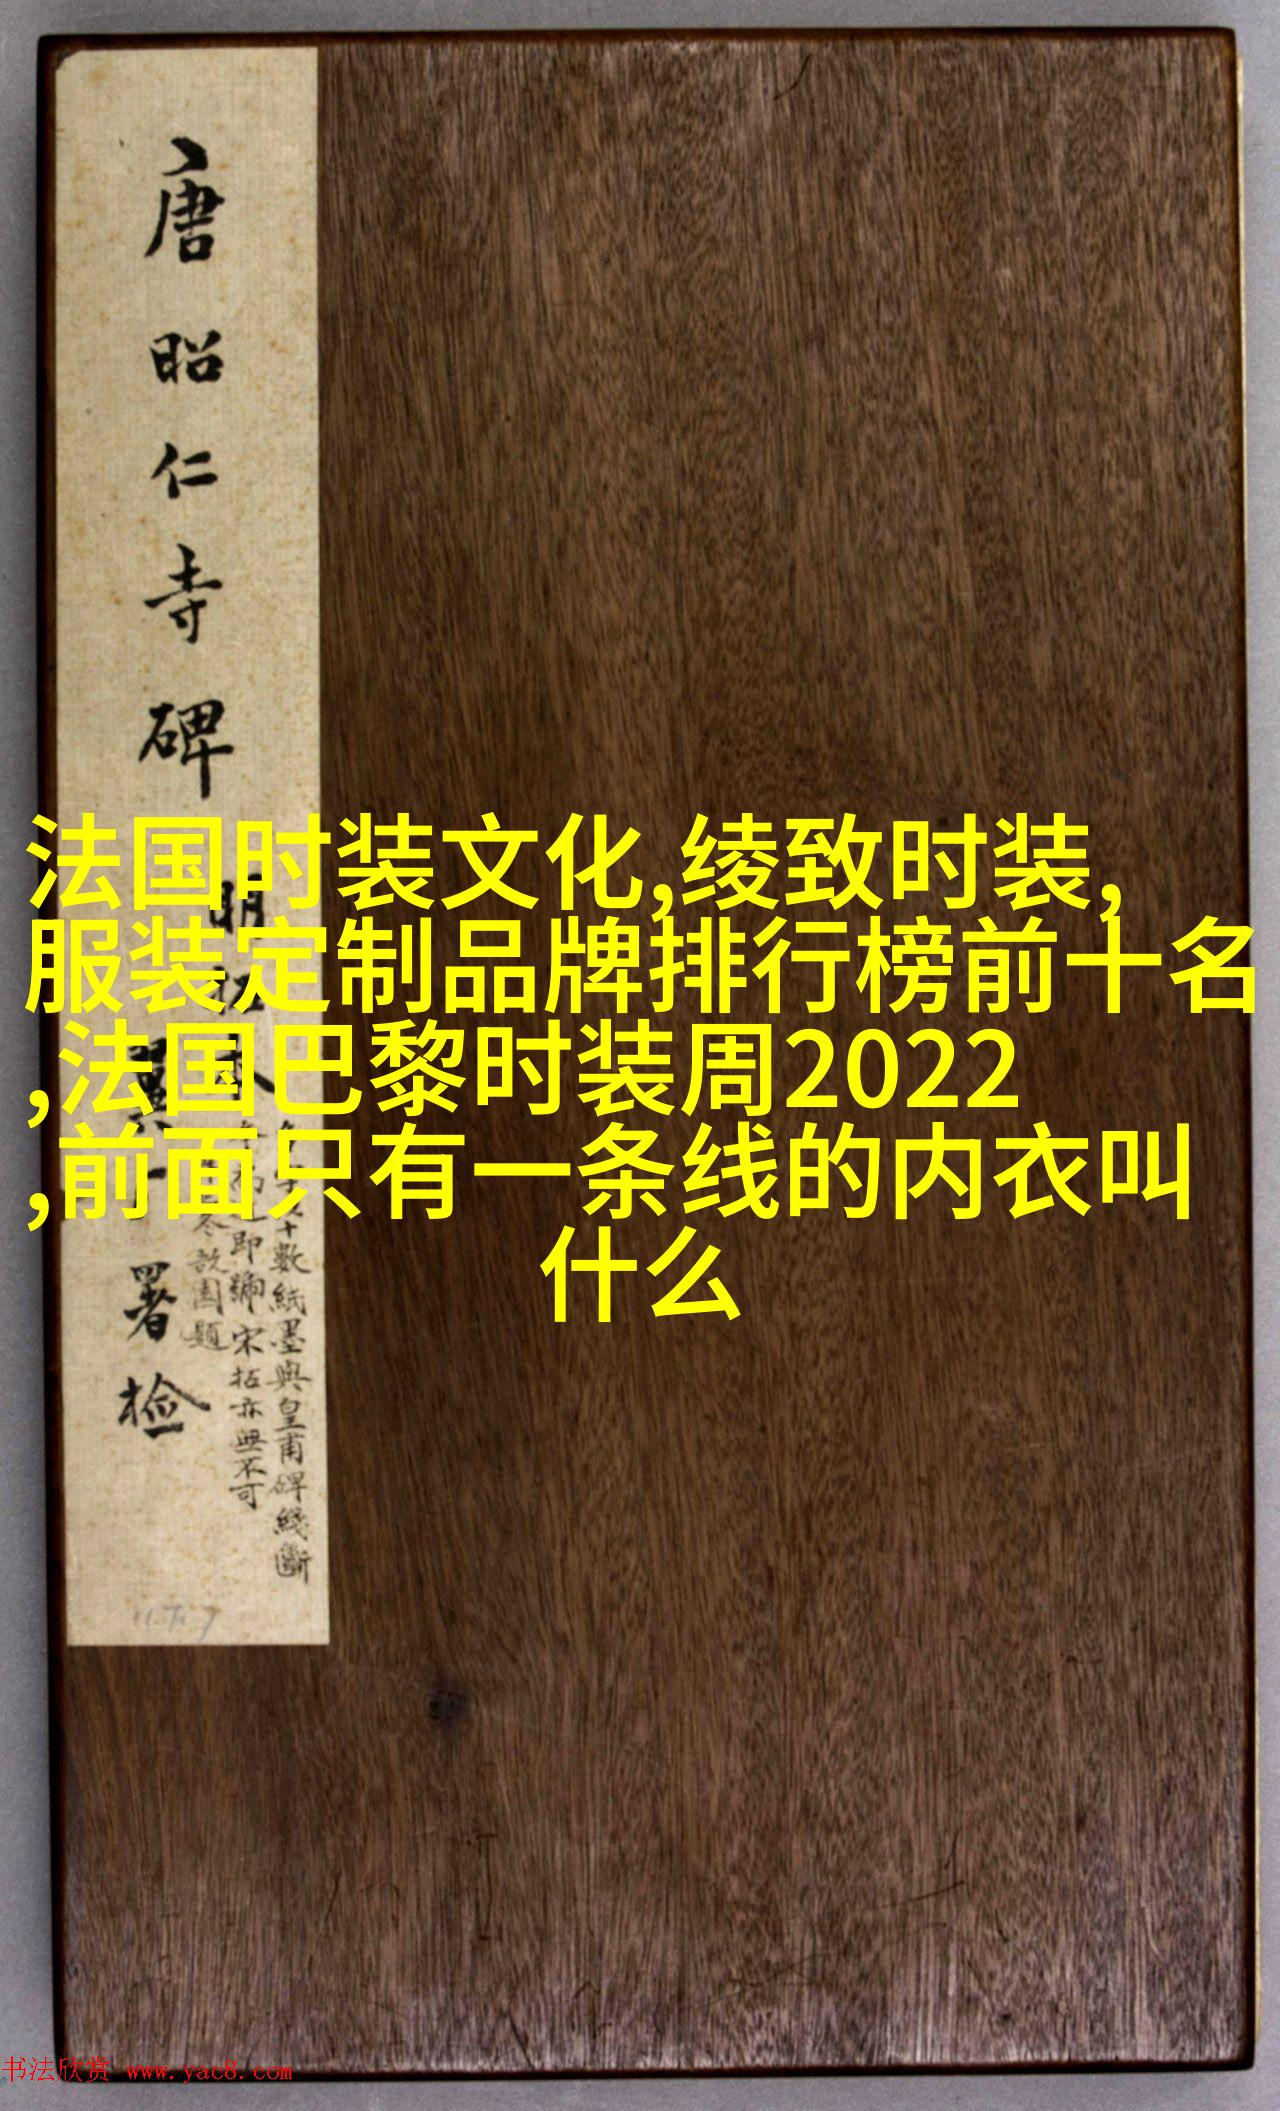 唐昭仁寺碑
署检
十數紙墨與皇甫碑綫斷
即編宋拓亦無不可
冬敔園題
法国时装文化,绫致时装,
服装定制品牌排行榜前十名
,法国巴黎时装周2022
,前面只有一条线的内衣叫
什么
书法欣赏 www.yac8.com